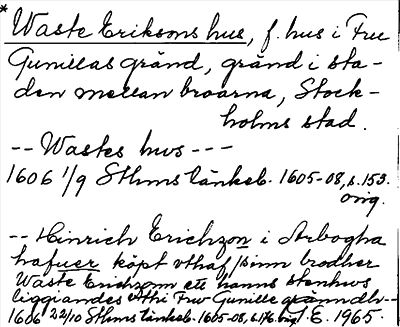 * Waste Eriksons hus, f. hus i Fru
Gunillas gränd, gränd i sta-
den mellan broarna, Stock-
holms stad.
-- Wastes hws ---
1606 1/9 Sthms tänkeb. 1605-08, s. 153.
orig.
-- Hinrich Erichzon i Arbogha
hafuer köpt vthaf sinn brodher
Waste Erichzom ett hanns stenhws
liggiandes vthi Frw Gunille gränndh--
1606 22/10 Sthms tänkeb. 1605-08, s. 176 orig. E. 1965.